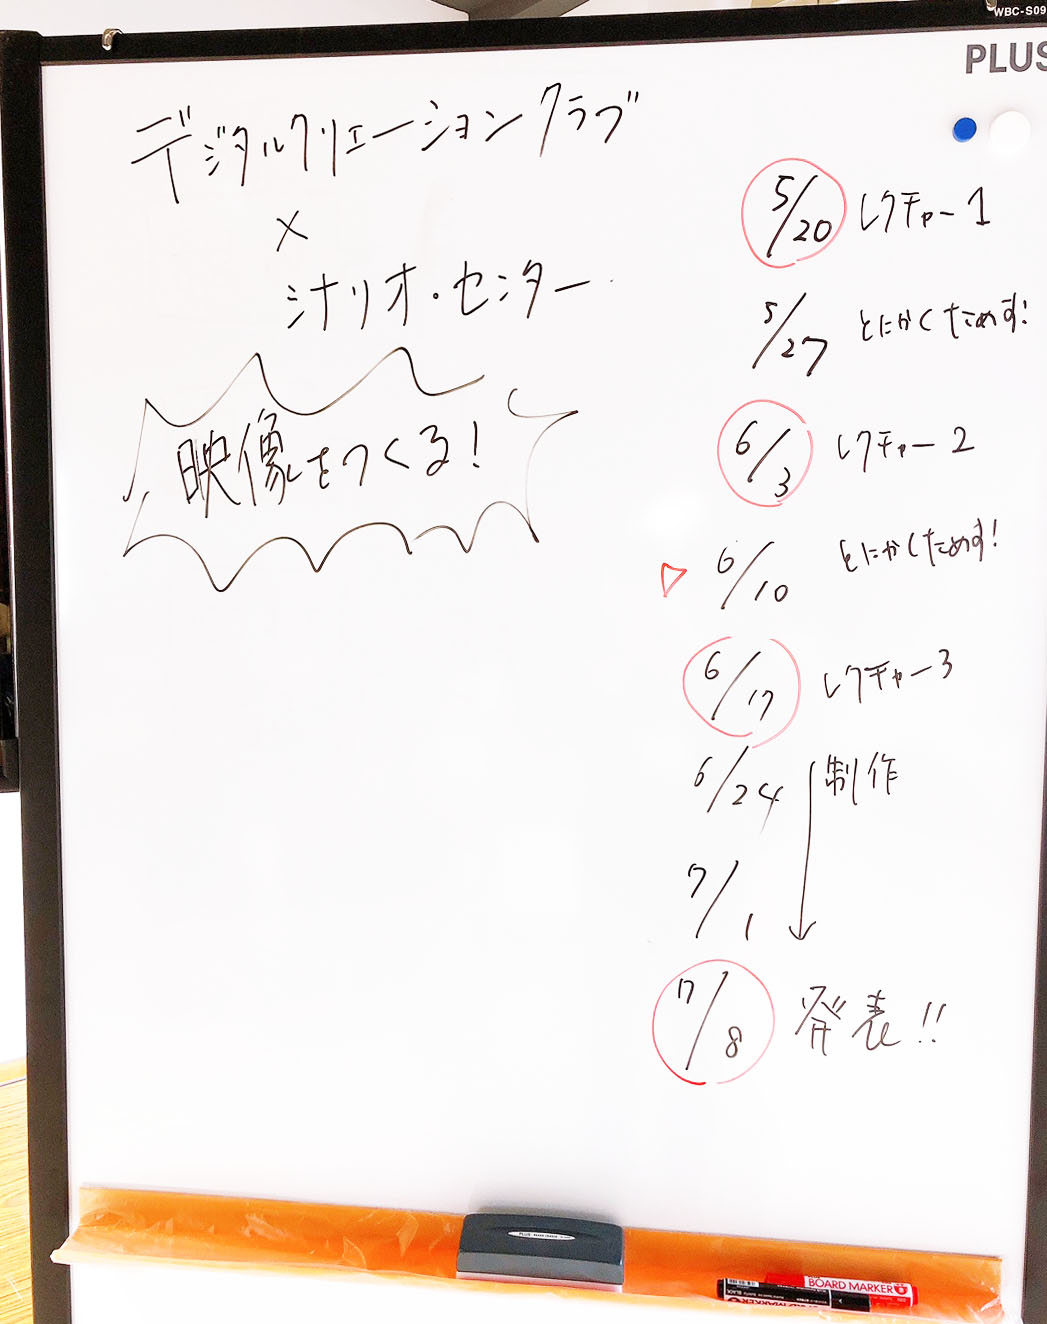 WBC-S09
PLUS
デジタルクリエーションクラブ
×
シナリオ・センター
映像をつくる!
5/20 レクチャー1
5/27 とにかくためす!
6/3 レクチャー2
▷ 6/10 とにかくためす!
6/17 レクチャー3
6/24 制作
7/1
7/8 発表!!
PLUS
BOARD MARKER